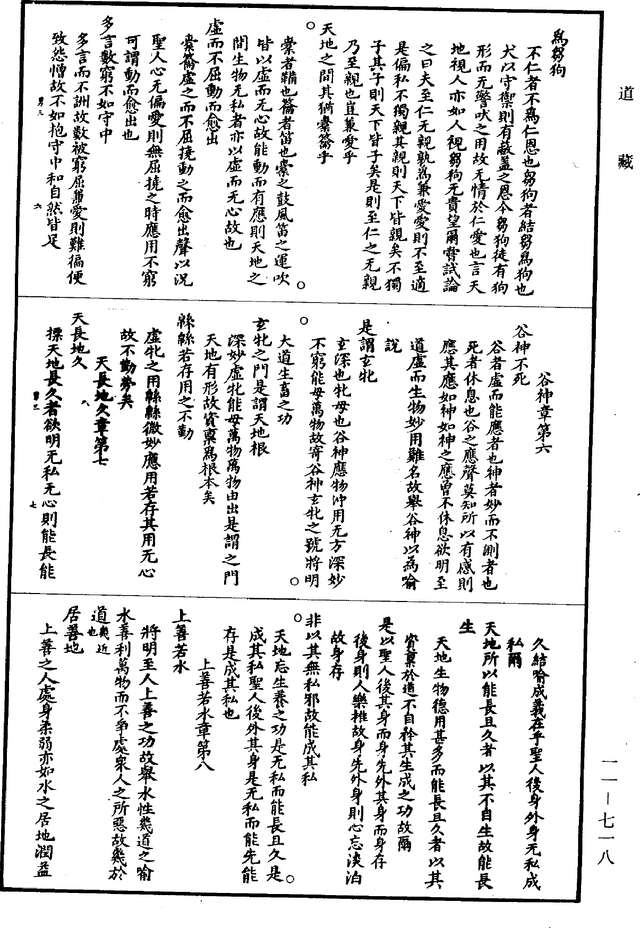 道藏
爲芻狗
不仁者不爲仁恩也芻狗者結芻爲狗也
犬以守禦則有蔽蓋之恩今芻狗徒有狗
形而无警吠之用故无情於仁愛也言天
地視人亦如人視芻狗无責望爾嘗試論
之曰夫至仁无親孰爲兼愛愛則不至適
是偏私不獨親其親則天下皆親矣不獨
子其子則天下皆子矣是則至仁之无親
乃至親也豈兼愛乎
天地之間其猶橐籥乎
橐者鞴也籥者笛也橐之鼓風笛之運吹
皆以虛而无心故能動而有應則天地之
間生物无私者亦以虛而无心故也
虛而不屈動而愈出
橐籥虛之而不屈撓動之而愈出聲以況
聖人心无偏愛則無屈撓之時應用不窮
可謂動而愈出也
多言數窮不如守中
多言而不詶故數被窮屈兼愛則難徧便
致怨憎故不如抱守中和自然皆足
六
谷神章第六
谷神不死
谷者虛而能應者也神者妙而不測者也
死者休息也谷之應聲莫知所以有感則
應其應如神如神之應曾不休息欲明至
道虛而生物妙用難名故舉谷神以為喻
說
是謂玄牝
玄深也牝母也谷神應物沖用无方深妙
不窮能母萬物故寄谷神玄牝之號將明
大道生畜之功
玄牝之門是謂天地根
深妙虛牝能母萬物萬物由出是謂之門
天地有形故資稟爲根本矣
緜緜若存用之不勤
虛牝之用緜緜微妙應用若存其用无心
故不勤勞矣
天長地久章第七
天長地久
摽天地長久者欲明无私无心則能長能
七
久結喻成義在乎聖人後身外身无私成
私爾
天地所以能長且久者以其不自生故能長
生
天地生物德用甚多而能長且久者以其
資稟於道不自矜其生成之功故爾
是以聖人後其身而身先外其身而身存
後身則人樂推故身先外身則心忘淡泊
故身存
非以其無私邪故能成其私
天地忘生養之功是无私而能長且久是
成其私聖人後外其身是无私而能先能
存是成其私也
上善若水章第八
上善若水
將明至人上善之功故舉水性幾道之喻
水善利萬物而不爭處衆人之所惡故幾於
道幾近也
居善地
上善之人處身柔弱亦如水之居地潤益
一一－七一八